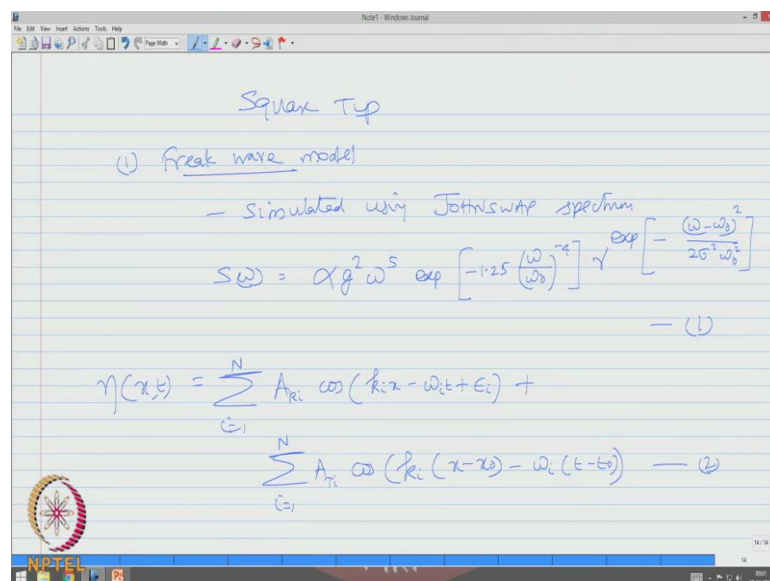 Note1 - Windows Journal
File Edit View Insert Actions Tools Help
Page Width
Square TLP
(1) Freak wave model
- Simulated using JOHNSWAP spectrum
S(ω) = α g² ω⁵ exp [-1.25 (ω/ω₀)⁻⁴] γ^exp[-(ω-ω₀)²/2σ²ω₀²]
— (1)
η(x,t) = Σ_{i=1}^{N} A_{Ri} cos(k_i x - ω_i t + ε_i) +
Σ_{i=1}^{N} A_{Ti} cos(k_i (x-x₀) - ω_i (t-t₀)) — (2)
NPTEL
14/14
14